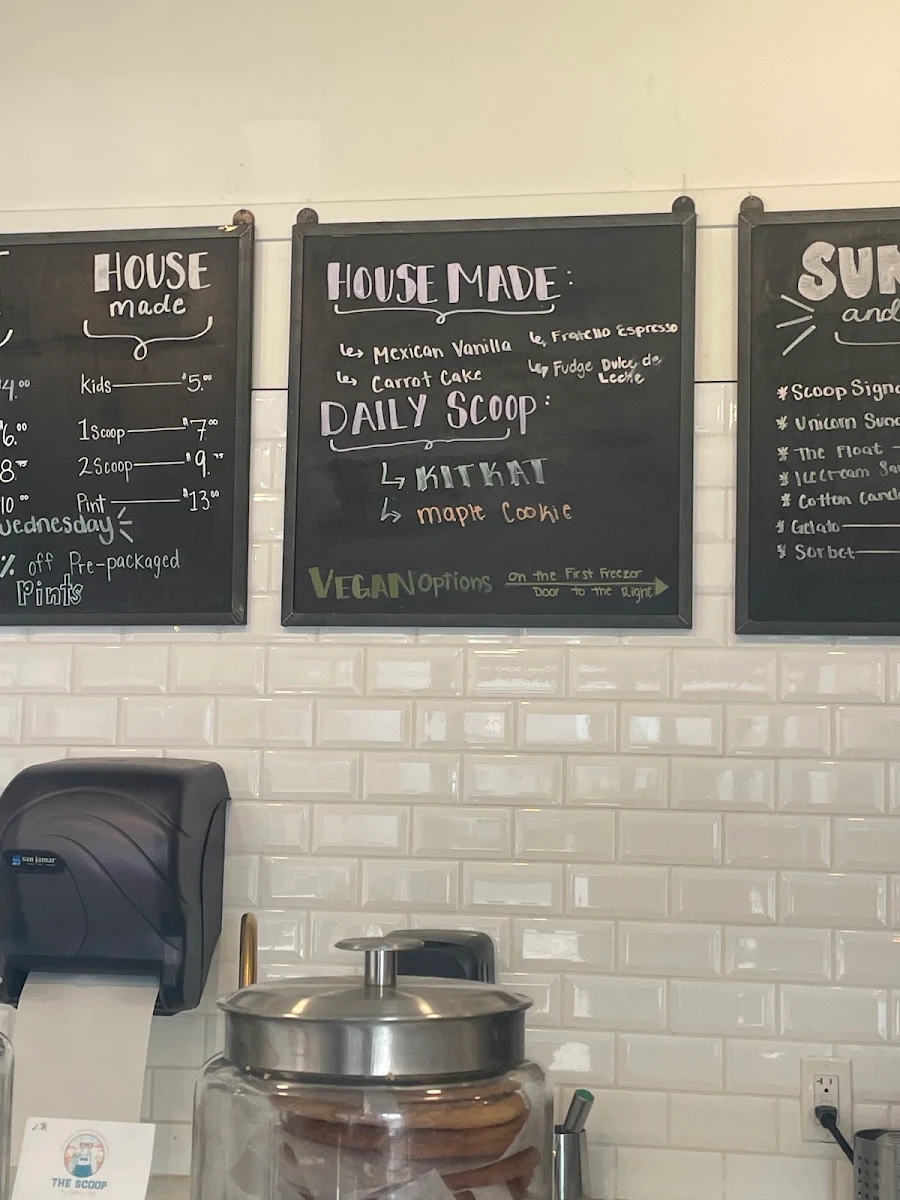 HOUSE
made
4.00
Kids $5.00
6.00
1 Scoop $7.00
8.75
2 Scoop $9.75
10.00
Pint $13.00
Wednesday
% off Pre-packaged
Pints
HOUSE MADE:
Mexican Vanilla
Carrot Cake
Fratello Espresso
Fudge Dulce de
Leche
DAILY SCOOP:
KITKAT
maple Cookie
VEGAN Options
on the First Freezer
Door to the Right
SUN
and
*Scoop Signa
*Unicorn Sund
*The Float
*Ice cream Sa
*Cotton Cand
*Gelato
*Sorbet
san jamar
THE SCOOP